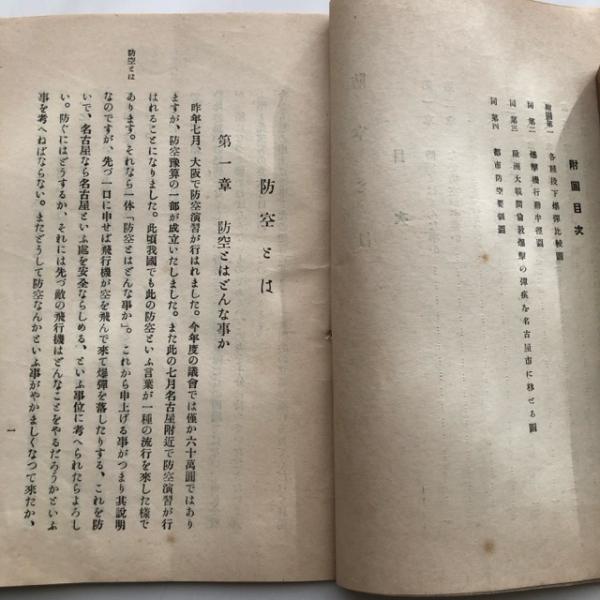 附圖目次
附圖第一 各種投下爆彈比較圖
同 第二 爆擊機行動半徑圖
同 第三 歐洲大戰間倫敦爆擊の彈痕を名古屋市に移せる圖
同 第四 都市防空要領圖
防空とは
第一章 防空とはどんな事か
昨年七月、大阪で防空演習が行はれました。今年度の議會では僅か六十萬圓ではあり
ますが、防空豫算の一部が成立いたしました。また此の七月名古屋附近で防空演習が行
はれることになりました。此頃我國でも此の防空といふ言葉が一種の流行を來した樣で
あります。それなら一体「防空とはどんな事か」。これから申上げる事がつまり其說明
なのですが、先づ一口に申せば飛行機が空を飛んで來て爆彈を落したりする、これを防
いで、名古屋なら名古屋といふ處を安全ならしめる、といふ事位に考へられたらよろし
い。防ぐにはどうするか、それには先づ敵の飛行機はどんなことをやるだらうかといふ
事を考へねばならない。またどうして防空なんかといふ事がやかましくなつて來たか、
防空とは
一